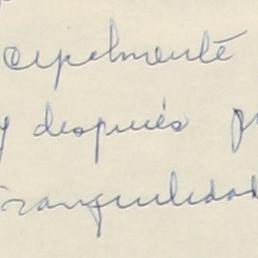 cipalmente
y después p
tranquilidad